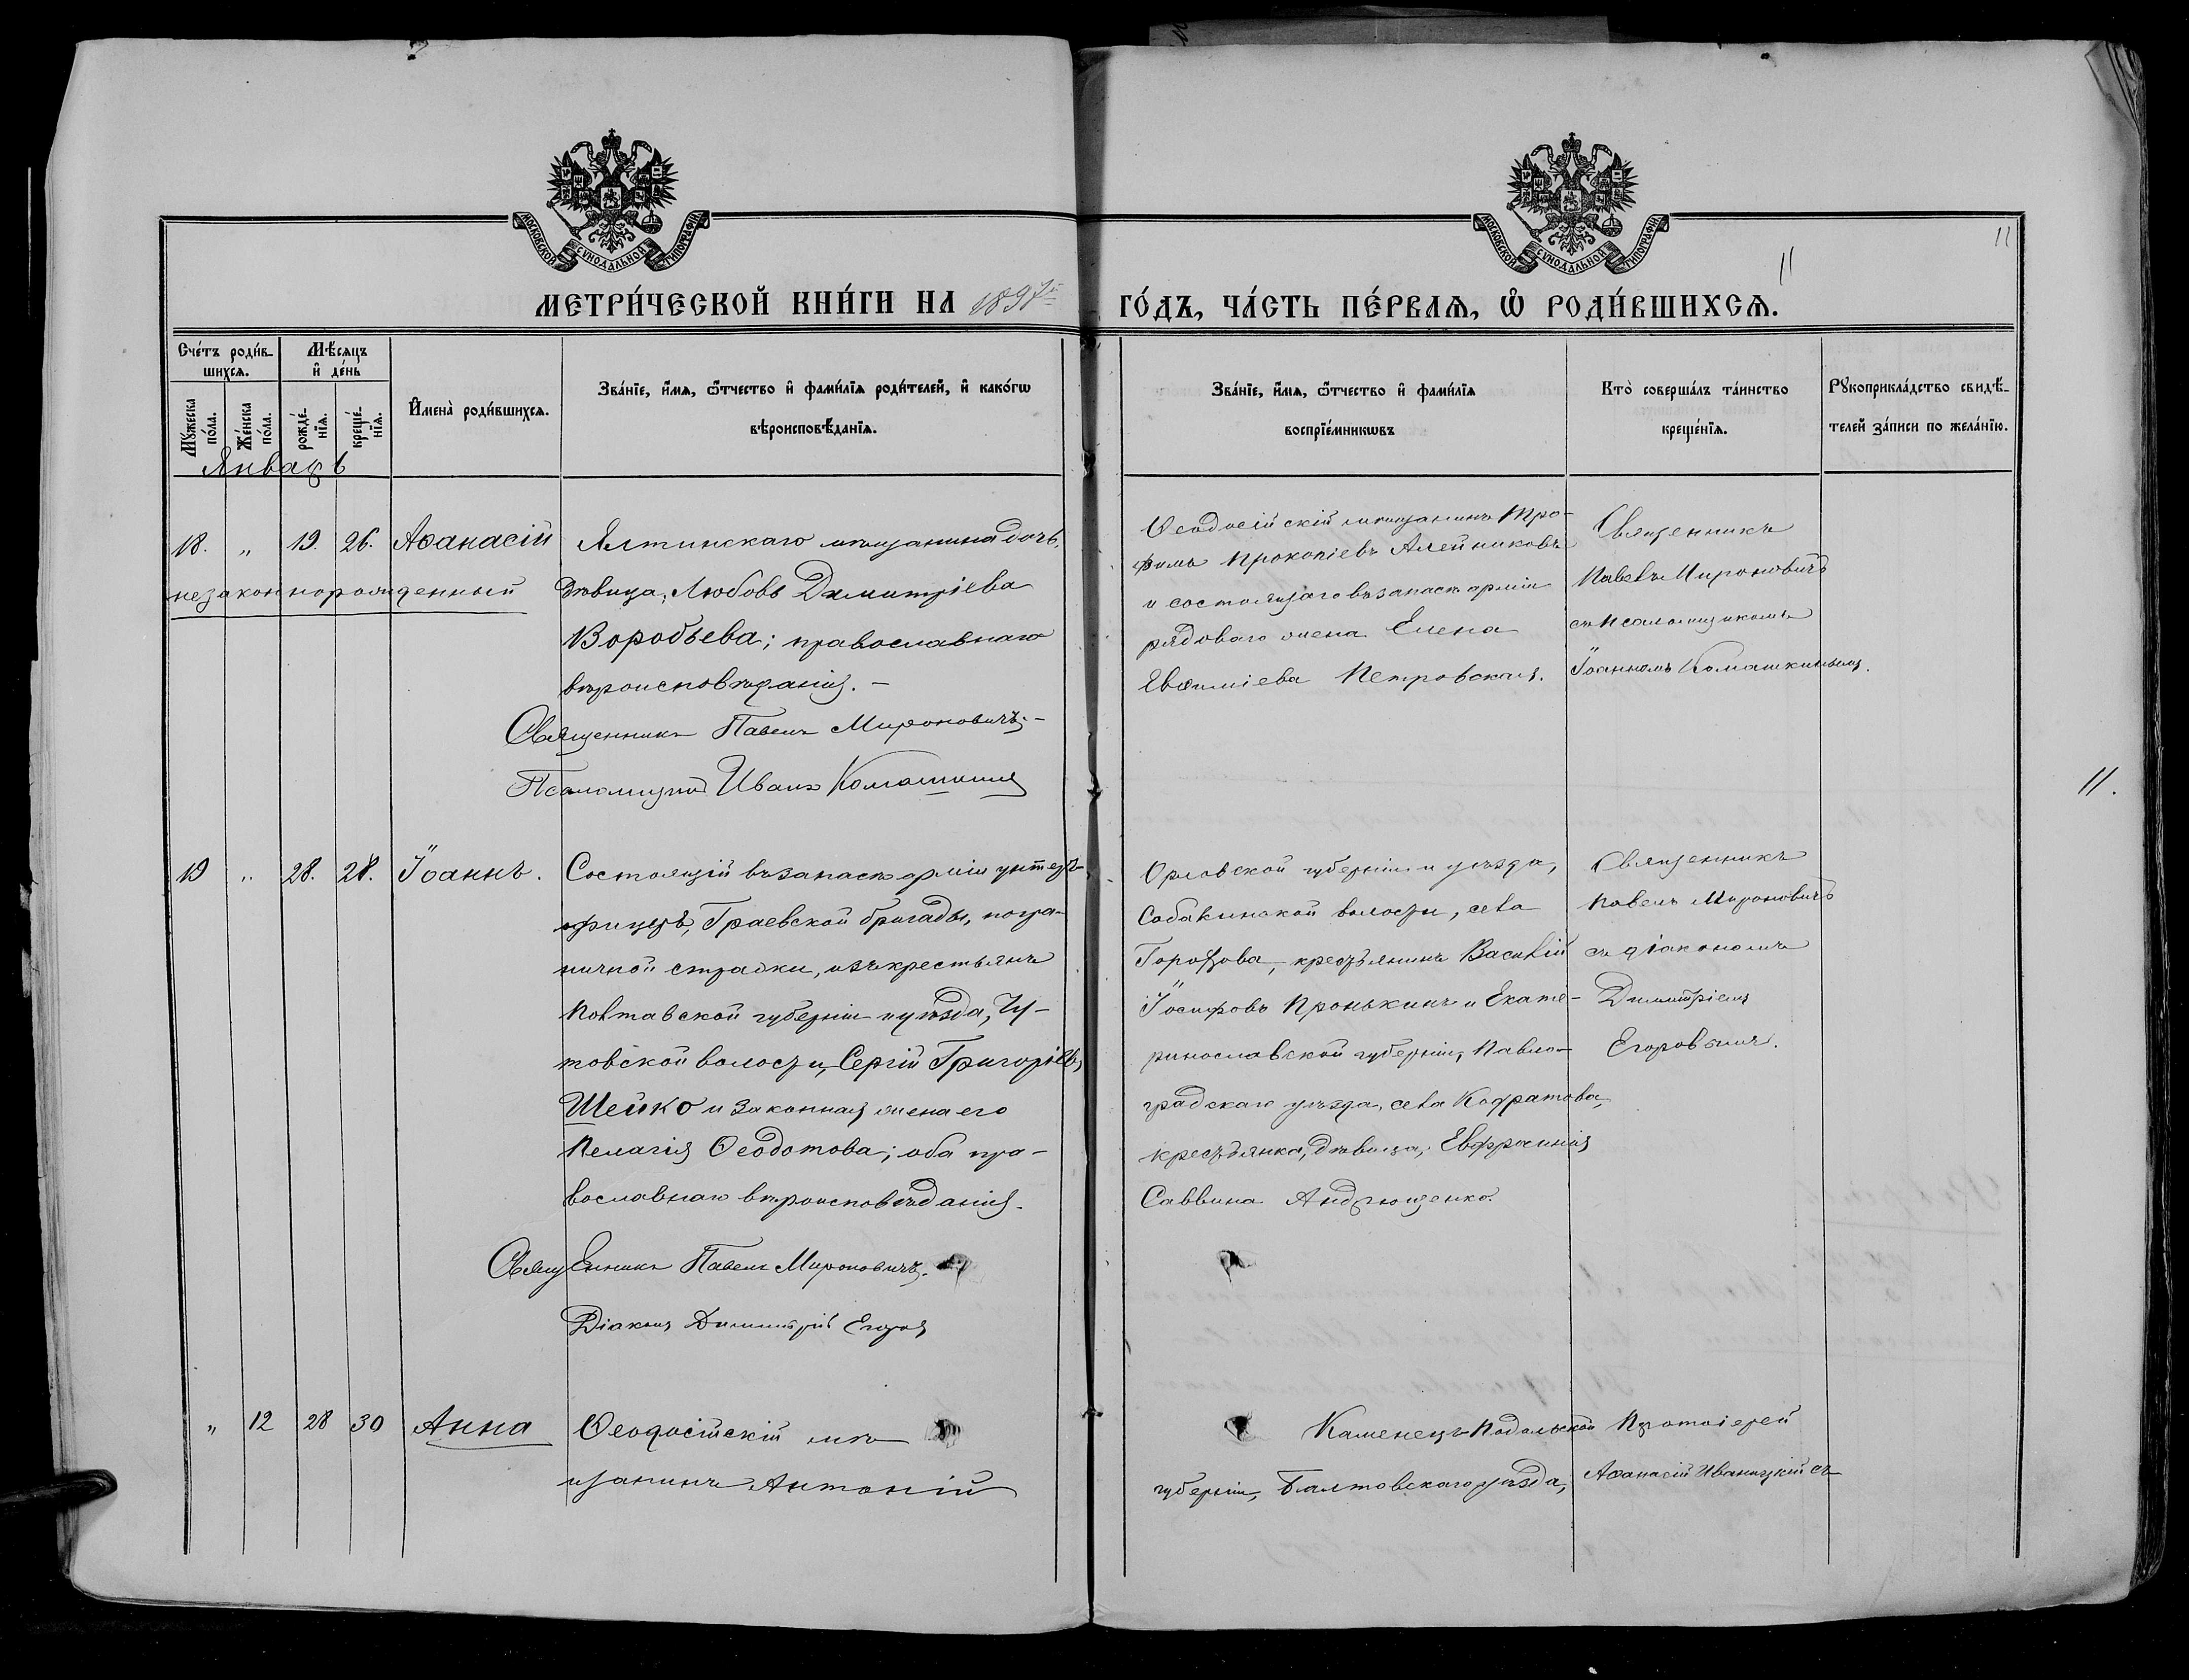 МОСКОВСКОЙ СѴНОДАЛЬНОЙ ТИПОГРАФІИ
МОСКОВСКОЙ СѴНОДАЛЬНОЙ ТИПОГРАФІИ
11
11
МЕТРИ́ЧЕСКОЙ КНИ́ГИ НА 1897й
ГО́ДЪ, ЧА́СТЬ ПЕ́РВАЯ, Ѡ РОДИ́ВШИХСЯ.
Сче́тъ роди́в-
шихся.
Мѣ́сяцъ
и де́нь
Му́жеска по́ла.
Же́нска по́ла.
рожде́-
нїя.
креще́-
нїя.
Имена̀ роди́вшихся.
Зва́нїе, и́мя, ѻ҆́тчество и фами́лїя роди́телей, и како́гѡ
вѣроисповѣ́данїя.
Зва́нїе, и́мя, ѻ҆́тчество и фами́лїя
воспрїе́мникѡвъ
Кто̀ соверша́лъ та́инство
креще́нїя.
Рꙋкоприкла́дство свидѣ́-
телей за́писи по жела́нїю.
Январь
18. „ 19. 26. Аѳанасій
незаконнорожденный
Ялтинскаго мѣщанина дочь,
дѣвица, Любовь Димитріева
Воробьева; православнаго
вѣроисповѣданія. –
Священникъ Павелъ Мироновичъ. –
Псаломщикъ Иванъ Комашкинъ
Ѳеодосійскій мѣщанинъ Тро-
фимъ Прокопіевъ Алейниковъ
и состоящаго въ запасѣ арміи
рядоваго жена Елена
Евѳиміева Петровская.
Священникъ
Павелъ Мироновичъ
съ псаломщикомъ
Іоанномъ Комашкинымъ.
11.
19 „ 28. 28. Іоаннъ.
Состоящій въ запасѣ арміи унтеръ-
офицеръ, Граевской бригады, погра-
ничной стражи, изъ крестьянъ
Полтавской губерніи и уѣзда, Чу-
товской волости, Сергій Григоріевъ
Шейко и законная жена его
Пелагія Ѳеодотова; оба пра-
вославнаго вѣроисповѣданія.
Священникъ Павелъ Мироновичъ.
Діаконъ Димитрій Егоровъ
Орловской губерніи и уѣзда,
Собакинской волости, села
Горохова, крестьянинъ Василій
Іосифовъ Пронькинъ и Екате-
ринославской губерніи, Павло-
градскаго уѣзда, села Кодратова,
крестьянка, дѣвица, Евфросинія
Саввина Андрющенко.
Священникъ
Павелъ Мироновичъ
съ діакономъ
Димитріемъ
Егоровымъ.
„ 12 28 30 Анна
Ѳеодосійскій мѣ
щанинъ Антоній
Каменецъ-Подольской
губерніи, Балтовскаго уѣзда,
Протоіерей
Аѳанасій Иваницкій съ